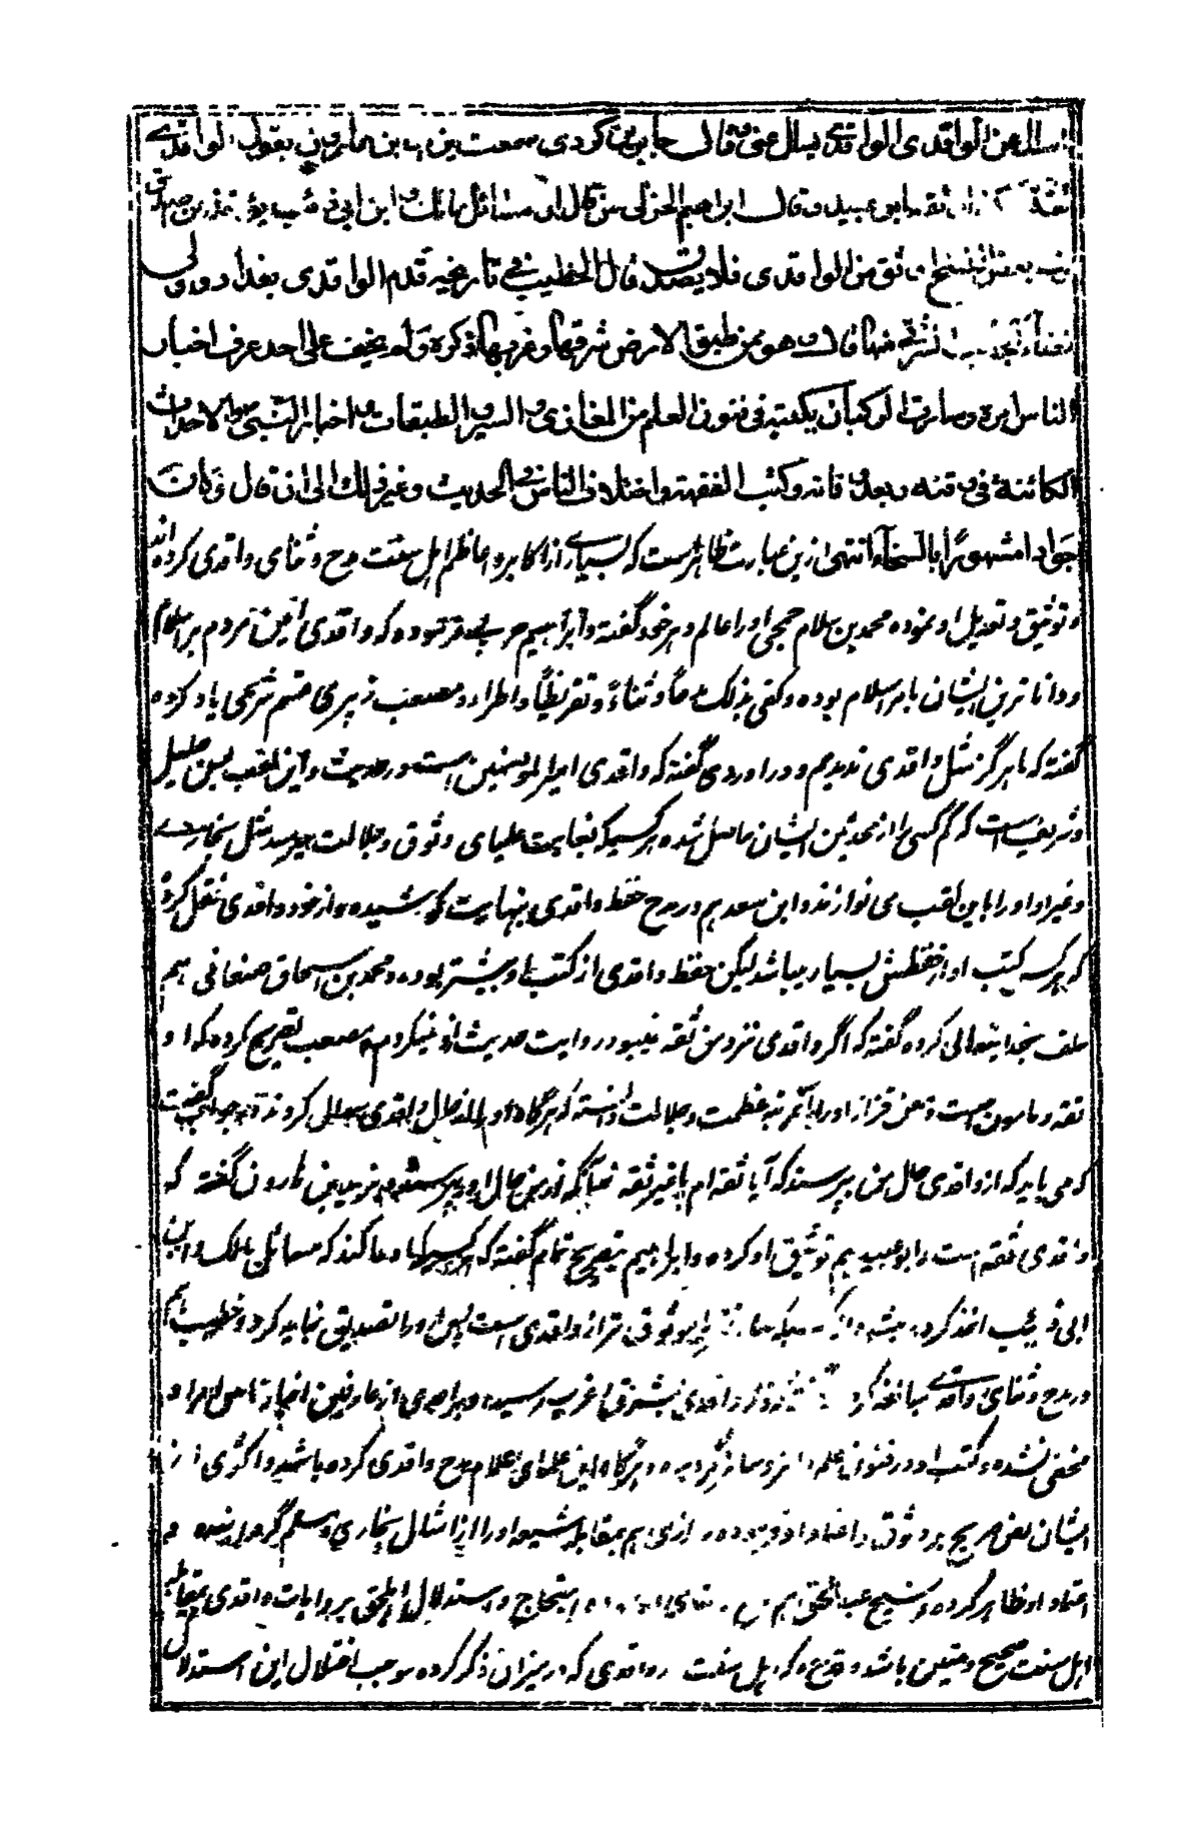 اسال عن الواقدی الواقدی یسال عنی و قال جابر بن کردی سمعت یزید بن هارون یقول الواقدے
ثقة ثقة ابو عبید و قال ابراهیم الحربی من قال ان مسائل مالک و ابن ابی ذئب یؤخذ عن
اوثق من الواقدی فلا یصدق قال الخطیب فی تاریخه قدم الواقدی بغداد و ولی
قضاء الجانب الشرقی منها قال و هو ممن طبق الارض شرقها و غربها ذکره و لم یخف علی احد عرف اخبار
الناس امره و سارت الرکبان بکتبه فی فنون العلم من المغازی و السیر و الطبقات و اخبار النبی و الاحداث
الکائنة فی وقته و بعد وفاته و کتب الفقه و اختلاف الناس فی الحدیث و غیر ذلک الی ان قال و کان
جوادا مشهورا بالسخاء انتهی ازین عبارت ظاهرست که بسیارے از اکابر و اعاظم اهل سنت مدح و ثنای واقدی کرده اند
و توثیق و تعدیل او نموده محمد بن سلام جمحی او را عالم دهر خود گفته و ابراهیم حربی فرموده که واقدی امین مردم بر اسلام
و دانا ترین ایشان بامر اسلام بوده و کفی بذلک مدحاً و ثناءً و تقریظاً و اطراء و مصعب زبیری قسم شرعی یاد کرده
گفته که ما هرگز مثل واقدی ندیدیم و دراوردی گفته که واقدی امیر المومنین است در حدیث و این لقب بس جلیل
و شریف است که کم کسی را از محدثین ایشان حاصل شده هر کسیکه بغایت علیای وثوق و جلالت میرسد مثل بخارے
و غیر او او را باین لقب می نوازند و ابن سعد هم در مدح حفظ واقدی بنهایت کوشیده و از خود واقدی نقل کرده
که هر کسے کتب او از حفظش بسیار میباشد لیکن حفظ واقدی از کتب او بیشتر بوده و محمد بن اسحاق صنعانی هم
حلف بخدایتعالی کرده گفته که اگر واقدی نزد من ثقه نمیبود روایت حدیث ازو نمیکردم و مصعب تصریح کرده که او
ثقه و مامون است و معن قزاز او را بآنمرتبه عظمت و جلالت دانسته که هرگاه او را از حال واقدی سوالی کردند بجوابش گفت
که می باید که از واقدی حال من بپرسند که آیا ثقه ام یا غیر ثقه نه آنکه از من حال او بپرسند و یزید بن هارون گفته که
واقدی ثقه است و ابو عبید هم توثیق او کرده و ابراهیم بتصریح تمام گفته که هر کسیکه ادعا کند که مسائل مالک و ابن
ابی ذئب اخذ کرده میشود از کسیکه او موثوق تر از واقدی است پس او را تصدیق نباید کرد و خطیب هم
در مدح و ثنای واقدے مبالغه کرده ذکر واقدی بشرق و غرب رسیده و بر احدی از عارفین اخبار ناس امر او
مخفی نشده و کتب او در فنون علم گردیده و هرگاه این علمای اعلام مدح واقدی کرده باشند و اکثری از
ایشان نص صریح بر وثوق و اعتماد او نموده و رازی هم بمقابله شیعه او را از امثال بخاری و مسلم گردانیده و
اعتماد او ظاهر کرده و شیخ عبد الحق هم احتجاج و استدلال اهل حق بروایات واقدی بمقابله
اهل سنت صحیح و متین باشد و قدح اهل سنت در واقدی که در میزان ذکر کرده موجب اختلال این استدلال